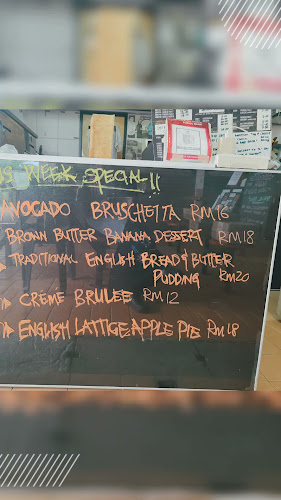 WEEK SPECIAL!!
AVOCADO BRUSCHETTA RM16
BROWN BUTTER BANANA DESSERT RM18
» TRADITIONAL ENGLISH BREAD & BUTTER
PUDDING RM20
» CREME BRULEE RM12
» ENGLISH LATTIGE APPLE PIE RM18